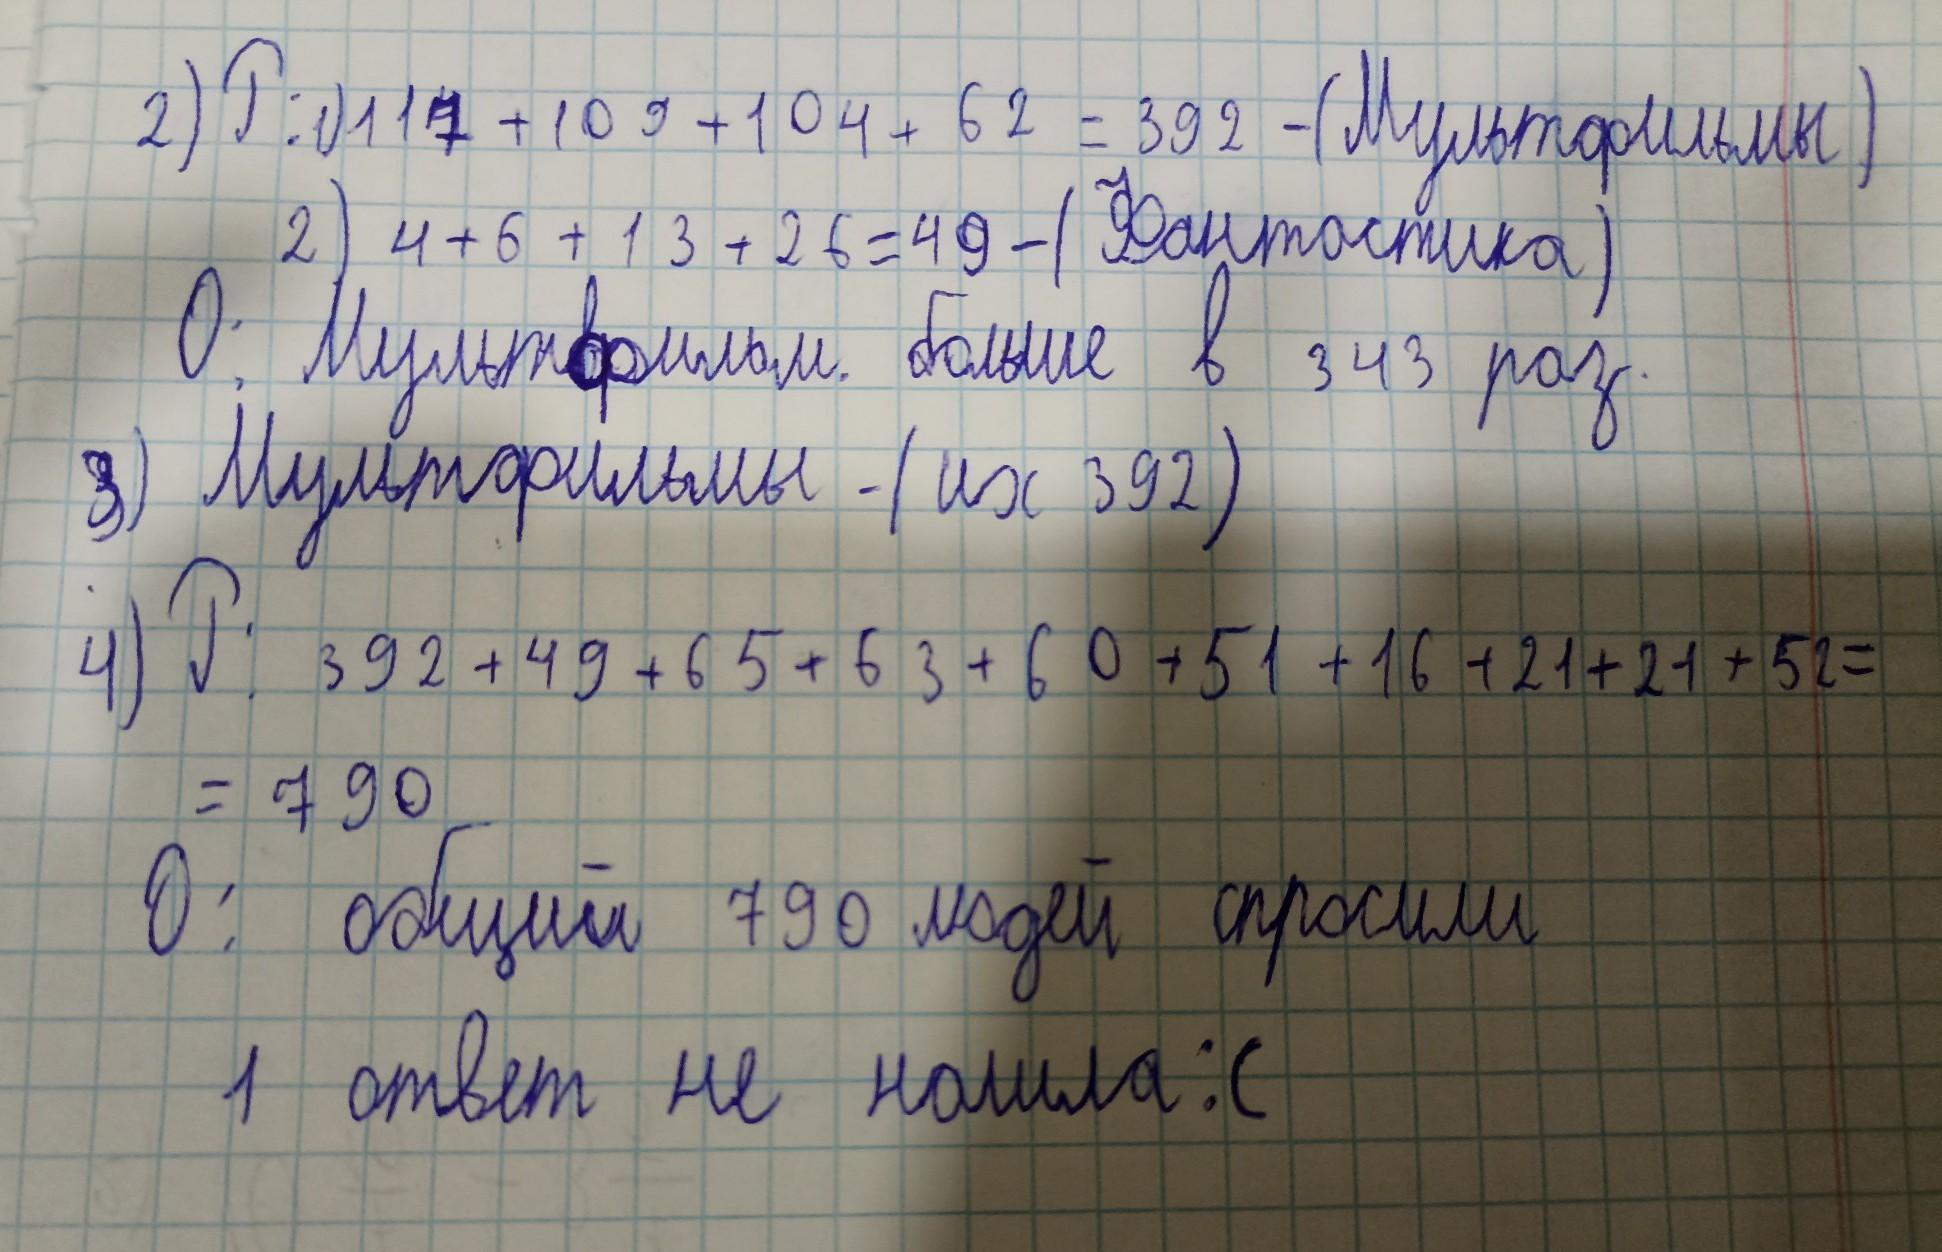 2) Р: 1) 117 + 109 + 104 + 62 = 392 - (Мультфильмы)
2) 4 + 6 + 13 + 26 = 49 - (Фантастика)
О: Мультфильм. больше в 343 раз.
3) Мультфильмы - (их 392)
4) Р: 392 + 49 + 65 + 63 + 60 + 51 + 16 + 21 + 21 + 52 =
= 790
О: общий 790 людей спросили
1 ответ не нашла :(